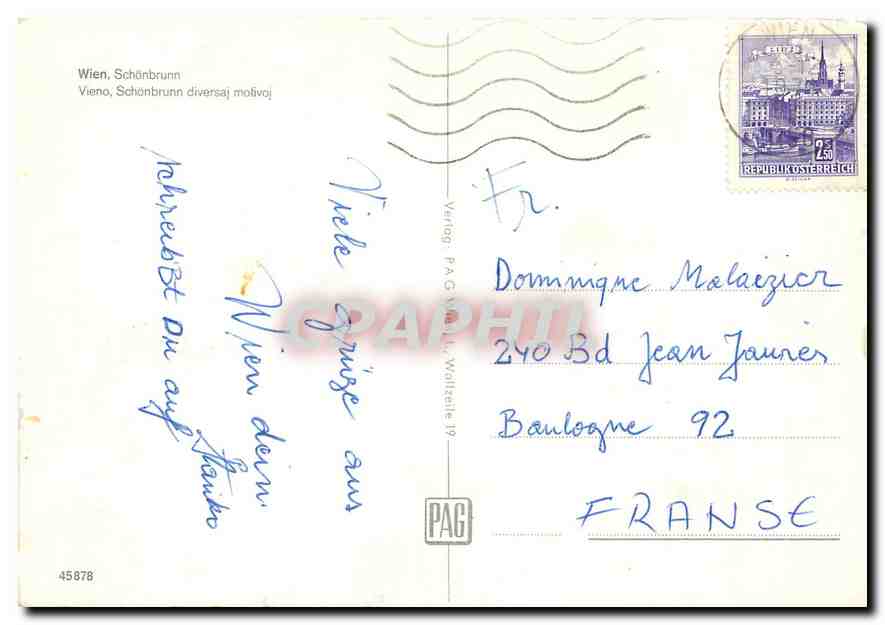 Wien, Schönbrunn
Vieno, Schönbrunn diversaj motivoj
Viele grüze aus
Wien dein
Stanko
schreibst Du auf
Verlag: PAG Wien I., Wollzeile 19
PAG
45878
WIEN
LINZ
2.50 S
REPUBLIK ÖSTERREICH
Fr.
Dominique Malaézier
240 Bd Jean Jaurès
Boulogne 92
FRANSE
CPAPHIL